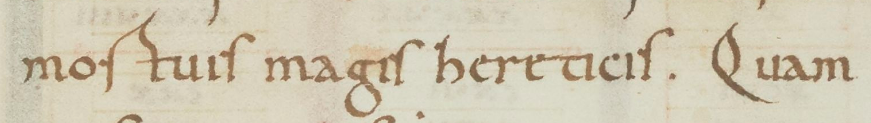 mos tuis magis hereticis. Quam